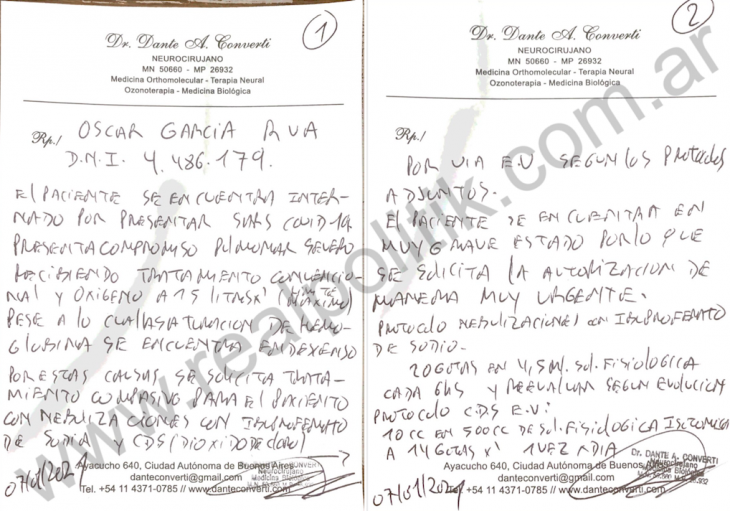 1
Dr. Dante A. Converti
NEUROCIRUJANO
MN 50660 - MP 26932
Medicina Orthomolecular - Terapia Neural
Ozonoterapia - Medicina Biológica
Rp./ OSCAR GARCIA RUA
D.N.I. 4.486.179.
El PACIENTE SE ENCUENTRA INTER-
NADO POR PRESENTAR SARS COVID-19
PRESENTA COMPROMISO PULMONAR SEVERO
RECIBIENDO TRATAMIENTO CONVENCIO-
NAl Y OXÍGENO A 15 LITROS X'
PESE A lo CUAl lA SATURACION DE HEMO-
GLOBINA SE ENCUENTRA EN DEXENSO
POR ESTAS CAUSAS, SE SOLICITA TRATA-
MIENTO COMPASIVO PARA El PACIENTE
CON NEBULIZACIONES CON IBUPROFENATO
DE SODIO Y CDS (DIOXIDO DE CLORO)
07/01/2021
Ayacucho 640, Ciudad Autónoma de Buenos Aires
danteconverti@gmail.com
Tel. +54 11 4371-0785 // www.danteconverti.com
2
Dr. Dante A. Converti
NEUROCIRUJANO
MN 50660 - MP 26932
Medicina Orthomolecular - Terapia Neural
Ozonoterapia - Medicina Biológica
Rp./
POR VIA E.V. SEGUN LOS PROTOCOLOS
ADJUNTOS.
El PACIENTE SE ENCUENTRA EN
MUY GRAVE ESTADO POR LO QUE
SE SOLICITA LA AUTORIZACION DE
MANERA MUY URGENTE.
PROTOCOLO NEBULIZACIONES CON IBUPROFENATO
DE SODIO.
20 GOTAS EN 4,5 Ml. SOL. FISIOLOGICA
CADA 6HS Y REEVALUAR SEGUN EVOLUCION
PROTOCOLO CDS E.V:
10 CC EN 500CC DE SOL. FISIOLOGICA ISOTONICA
A 14 GOTAS X' 1 VEZ A DIA
Dr. DANTE A. CONVERTI
Neurocirujano
07/01/2021
Ayacucho 640, Ciudad Autónoma de Buenos Aires
danteconverti@gmail.com
Tel. +54 11 4371-0785 // www.danteconverti.com
www.realpolitik.com.ar